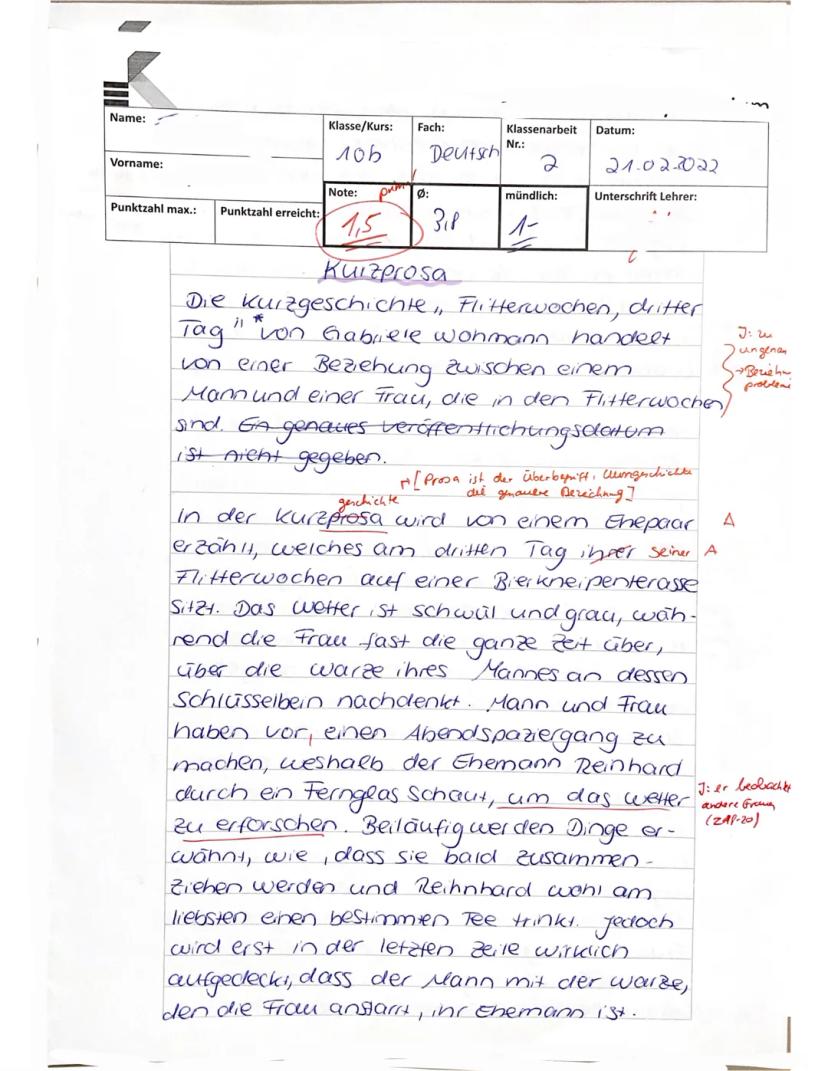 Name:
Klasse/Kurs:
10b
Fach:
Deutsch
Klassenarbeit Nr.:
2
Datum:
21.02.2022
Vorname:
Note:
1,5
prima!
Ø:
3,8
mündlich:
1-
Unterschrift Lehrer:
Punktzahl max.:
Punktzahl erreicht:
Kurzprosa
Die Kurzgeschichte „Flitterwochen, dritter
Tag"* von Gabriele Wohmann handelt
von einer Beziehung zwischen einem
Mann und einer Frau, die in den Flitterwochen
sind. Ein genaues Veröffentlichungsdatum
ist nicht gegeben.
I: zu
ungenau
→ Bezieh
probleme
→ [Prosa ist der Überbegriff, Kurzgeschichte
die genauere Bezeichnung]
geschichte
In der Kurzprosa wird von einem Ehepaar A
erzählt, welches am dritten Tag ihrer seiner A
Flitterwochen auf einer Bierkneipenterasse
sitzt. Das Wetter ist schwül und grau, wäh-
rend die Frau fast die ganze Zeit über,
über die Warze ihres Mannes an dessen
Schlüsselbein nachdenkt. Mann und Frau
haben vor, einen Abendspaziergang zu
machen, weshalb der Ehemann Reinhard
durch ein Fernglas schaut, um das Wetter
zu erforschen. Beiläufig werden Dinge er-
I: er beobachtet
andere Frauen
wähnt, wie, dass sie bald zusammen-
ziehen werden und Reihnhard wohl am
liebsten einen bestimmten Tee trinkt. Jedoch
wird erst in der letzten Zeile wirklich
aufgedeckt, dass der Mann mit der Warze,
den die Frau anstarrt, ihr Ehemann ist.